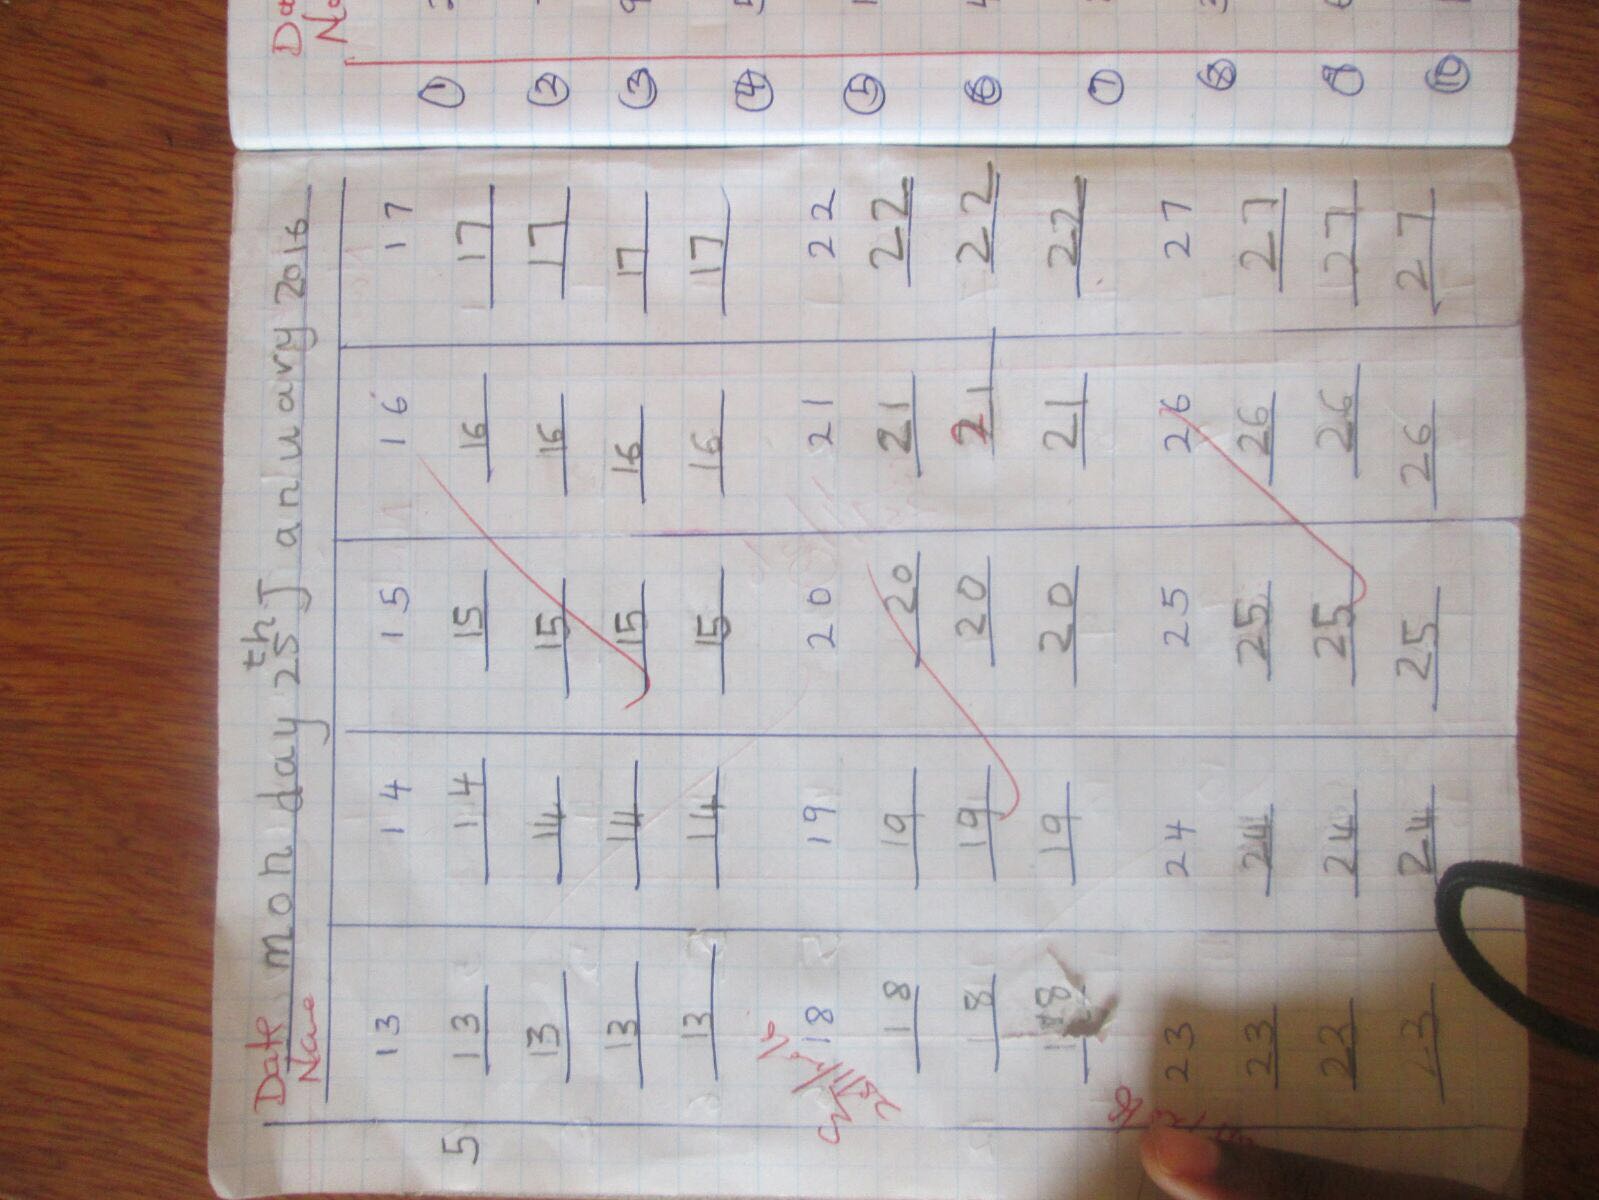 Date monday 25th January 2016
Name
13 14 15 16 17
5 13 14 15 16 17
13 14 15 16 17
13 14 15 16 17
13 14 15 16 17
18 19 20 21 22
18 19 20 21 22
18 19 20 21 22
18 19 20 21 22
23 24 25 26 27
23 24 25 26 27
23 24 25 26 27
23 24 25 26 27
①
②
③
④
⑤
⑥
⑦
⑧
⑩